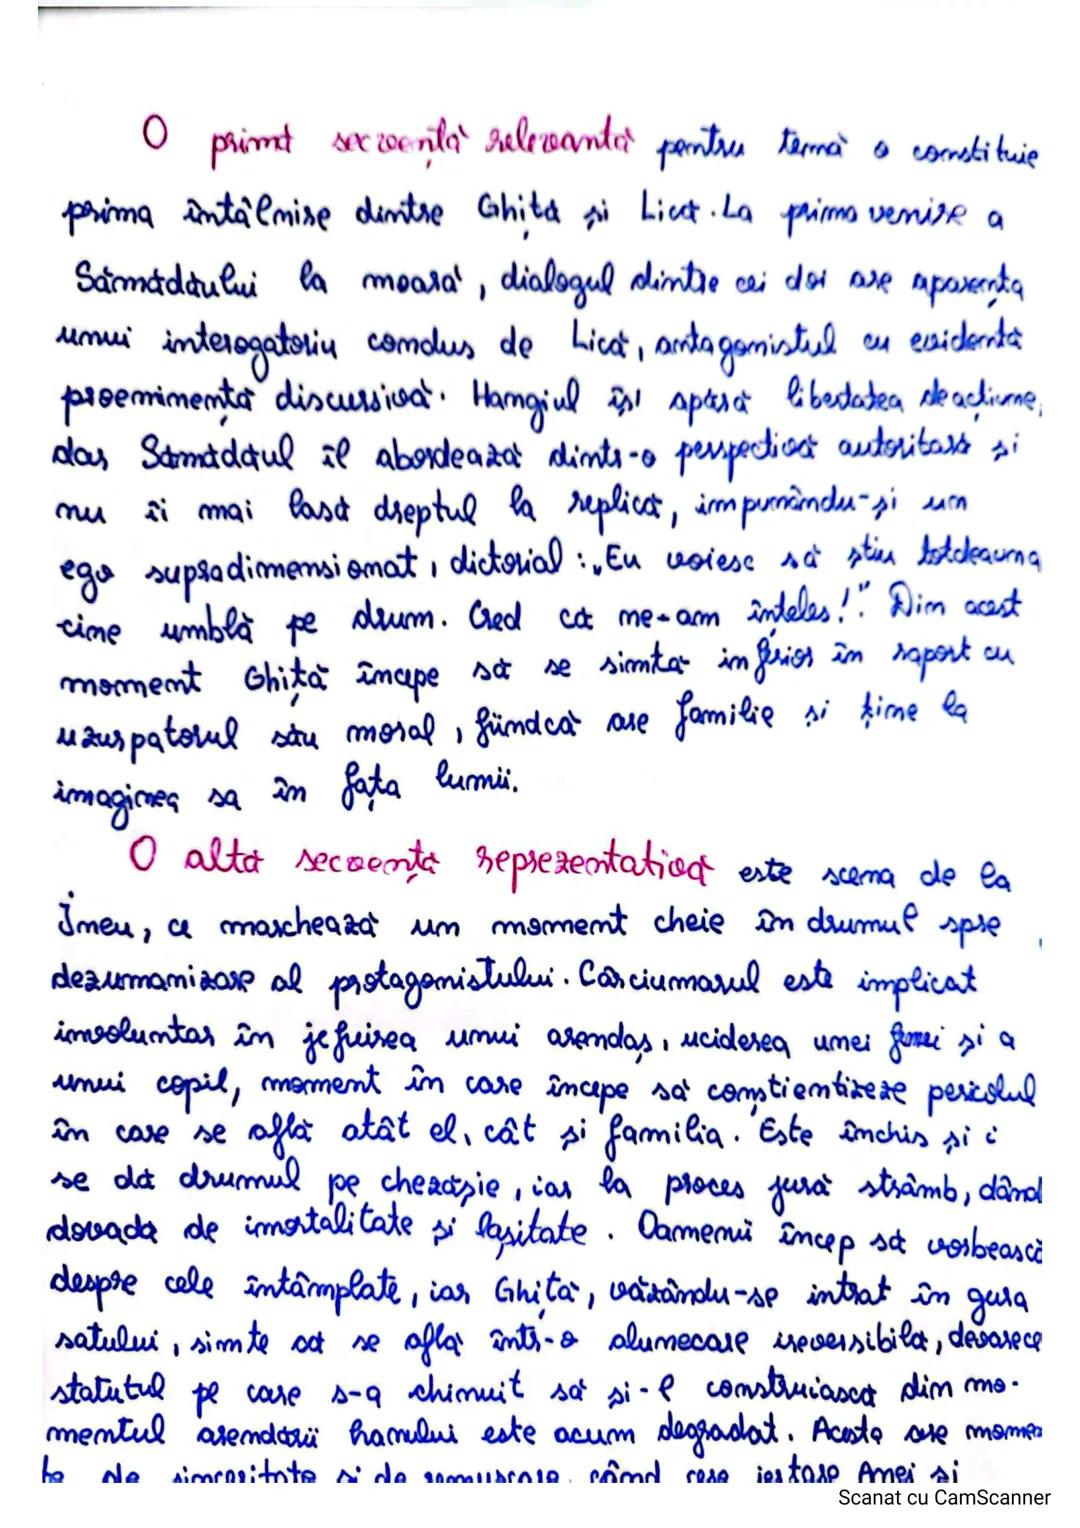 O primă secvență relevantă pentru temă o constituie
prima întâlnire dintre Ghiță și Lică. La prima venire a
Sămădăului la moară, dialogul dintre cei doi are aparența
unui interogatoriu condus de Lică, antagonistul cu evidentă
proeminență discursivă. Hangiul își apără libertatea de acțiune,
dar Sămădăul îl abordează dintr-o perspectivă autoritară și
nu îi mai lasă dreptul la replică, impunându-și un
ego supradimensionat, dictorial: „Eu voiesc să știu totdeauna
cine umblă pe drum. Cred că ne-am înțeles!". Din acest
moment Ghiță începe să se simtă inferior în raport cu
uzurpatorul său moral, fiindcă are familie și ține la
imaginea sa în fața lumii.
O altă secvență reprezentativă este scena de la
Ineu, ce marchează un moment cheie în drumul spre
dezumanizare al protagonistului. Cârciumarul este implicat
involuntar în jefuirea unui arendaș, uciderea unei femei și a
unui copil, moment în care începe să conștientizeze pericolul
în care se află atât el, cât și familia. Este închis și i
se dă drumul pe chezășie, iar la proces jură strâmb, dând
dovadă de imortalitate și lașitate. Oamenii încep să vorbească
despre cele întâmplate, iar Ghiță, văzându-se intrat în gura
satului, simte că se află într-o alunecare ireversibilă, deoarece
statutul pe care s-a chinuit să și-l construiască din mo-
mentul arendării hanului este acum degradat. Acesta are momen
te de sinceritate și de remușcare, când cere iertare Anei și
Scanat cu CamScanner